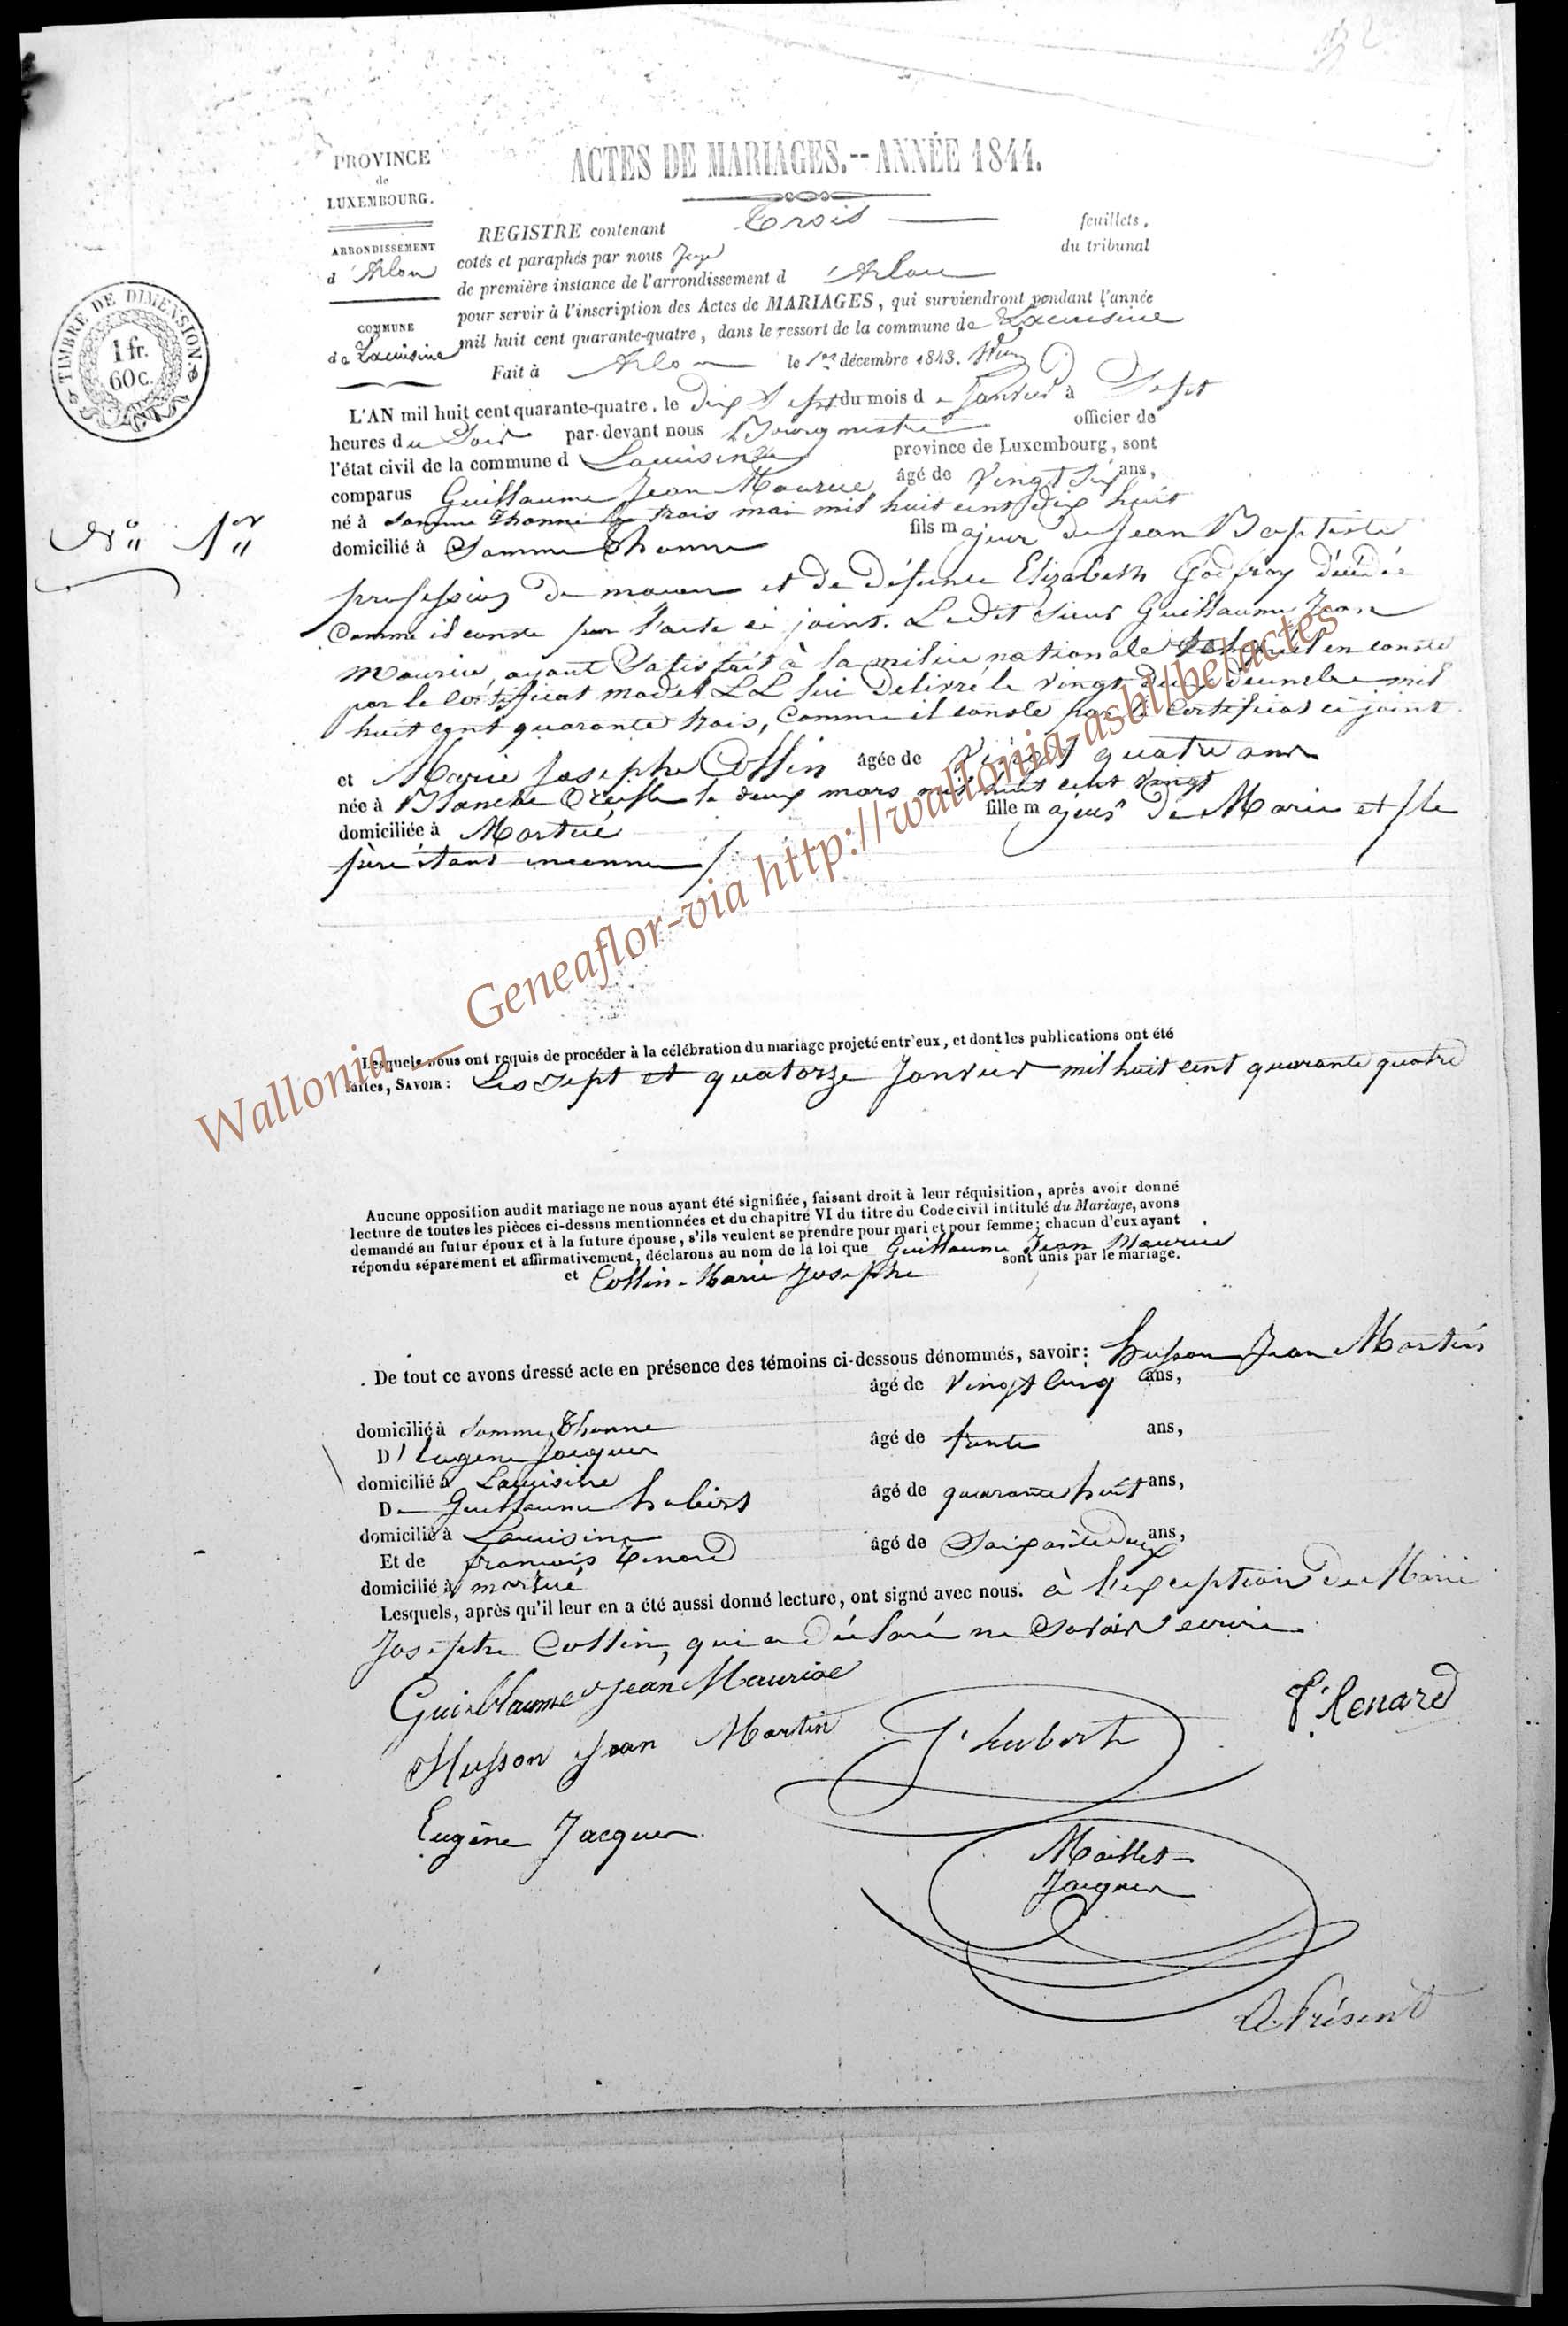 PROVINCE
de
LUXEMBOURG.
ARRONDISSEMENT
d'Arlon
COMMUNE
de Lacuisine
TIMBRE DE DIMENSION
1 fr.
60 c.
ACTES DE MARIAGES.--ANNÉE 1844.
REGISTRE contenant Trois feuillets,
cotés et paraphés par nous Juge du tribunal
de première instance de l'arrondissement d'Arlon
pour servir à l'inscription des Actes de MARIAGES, qui surviendront pendant l'année
mil huit cent quarante-quatre, dans le ressort de la commune de Lacuisine
Fait à Arlon le 1er décembre 1843.
N° 1er
L'AN mil huit cent quarante-quatre, le dix Sept du mois de Janvier à Sept
heures du Soir par-devant nous Bourgmestre officier de
l'état civil de la commune d Lacuisine province de Luxembourg, sont
comparus Guillaume Jean Maurice âgé de Vingt six ans,
né à Somme Thonne le trois mai mil huit cent dix huit
domicilié à Somme Thonne fils majeur de Jean Baptiste
profession de et de défunte Elizabeth Godfroy décédée
Comme il conste par l'acte ci joint. Le dit Sieur Guillaume Jean
Maurice, ayant Satisfait à la milice nationale il en conste
par le Certificat model LL lui Delivré le Vingt décembre mil
huit cent quarante trois, Comme il conste par le Certificat ci joint
et Marie Josephe Collin âgée de Vingt quatre ans
née à Blanche Oreille le deux mars mil huit cent Vingt
domiciliée à Martué fille majeur de Marie et le
père étant inconnu
Lesquels nous ont requis de procéder à la célébration du mariage projeté entr'eux, et dont les publications ont été
faites, SAVOIR: Les Sept et quatorze Janvier mil huit cent quarante quatre
Aucune opposition audit mariage ne nous ayant été signifiée, faisant droit à leur réquisition, après avoir donné
lecture de toutes les pièces ci-dessus mentionnées et du chapitre VI du titre du Code civil intitulé du Mariage, avons
demandé au futur époux et à la future épouse, s'ils veulent se prendre pour mari et pour femme; chacun d'eux ayant
répondu séparément et affirmativement, déclarons au nom de la loi que Guillaume Jean Maurice
et Collin Marie Josephe sont unis par le mariage.
De tout ce avons dressé acte en présence des témoins ci-dessous dénommés, savoir: husson Jean Martin
âgé de Vingt Cinq ans,
domicilié à Somme Thonne
D'Eugene Jacques âgé de trente ans,
domicilié à Lacuisine
De Guillaume hubert âgé de quarante huit ans,
domicilié à Lacuisine
Et de francois Renard âgé de Soixante Deux ans,
domicilié à martué
Lesquels, après qu'il leur en a été aussi donné lecture, ont signé avec nous. à l'exception de Marie
Josephe Collin, qui a déclaré ne Savoir ecrire
Guilblaume Jean Maurice
Husson Jean Martin
Eugène Jacques
G. hubert
F. Renard
Maillet-
Jacques
Wallonia _ Geneaflor-via http://wallonia-asbl.be/actes